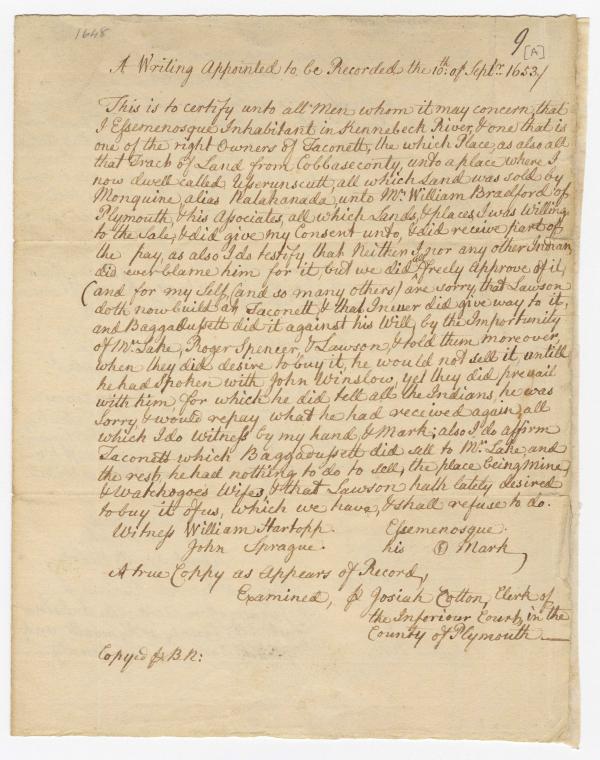 1648
9
[A]
A Writing Appointed to be Recorded the 10th. of Septbr. 1653/
This is to certify unto all Men whom it may concern, that
I Essemenosque Inhabitant in Kennebeck River, & one that is
one of the right Owners of Taconett, the which Place, as also all
that Tract of Land from Cobbaseconty, unto a place where I
now dwell called Usserunscutt, all which Land was sold by
Monquine, alias Natahanada, unto Mr. William Bradford of
Plymouth, & his Asociates, all which Lands, & places, I was Willing
to the Sale, & did give my Consent unto, & did receive part of
the pay, as also I do testify that Neither I, nor any other Indian
did ever blame him for it, but we did all freely Approve of it,
(and for my Self, (and so many others) are sorry, that Lawson
doth now build at Taconett, & that I never did give way to it,
and Baggadussett did it against his Will, by the Importunity
of Mr. Lake, Roger Spencer, & Lawson, & told them moreover,
when they did desire to buy it, he would not sell it, untill
he had spoken with John Winslow, yet they did prevail
with him, for which he did tell all the Indians, he was
Sorry, & would repay what he had received again, all
which I do Witness by my hand, & Mark; also I do affirm
Taconett which Baggadussett did sell to Mr. Lake, and
the rest, he had nothing to do to sell, the place being mine,
& Watchogoes Wifes, & that Lawson hath lately desired
to buy it of us, which we have, & shall refuse to do.
Witness William Hartopp. Essemenosque.
John Sprague. his Mark
A true Coppy as Appears of Record,
Examined, P Josiah Cotton, Clerk of
the Inferiour Court, in the
County of Plymouth
Copyed P B.N: